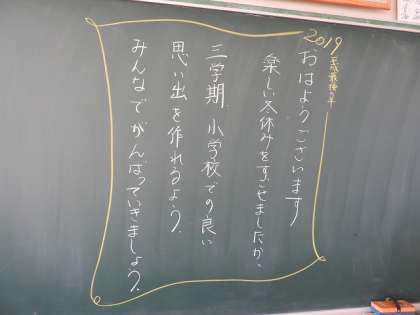 2019
平成最後の年
おはようございます
楽しい冬休みをすごせましたか。
三学期、小学校での良い
思い出を作れるよう、
みんなでがんばっていきましょう。